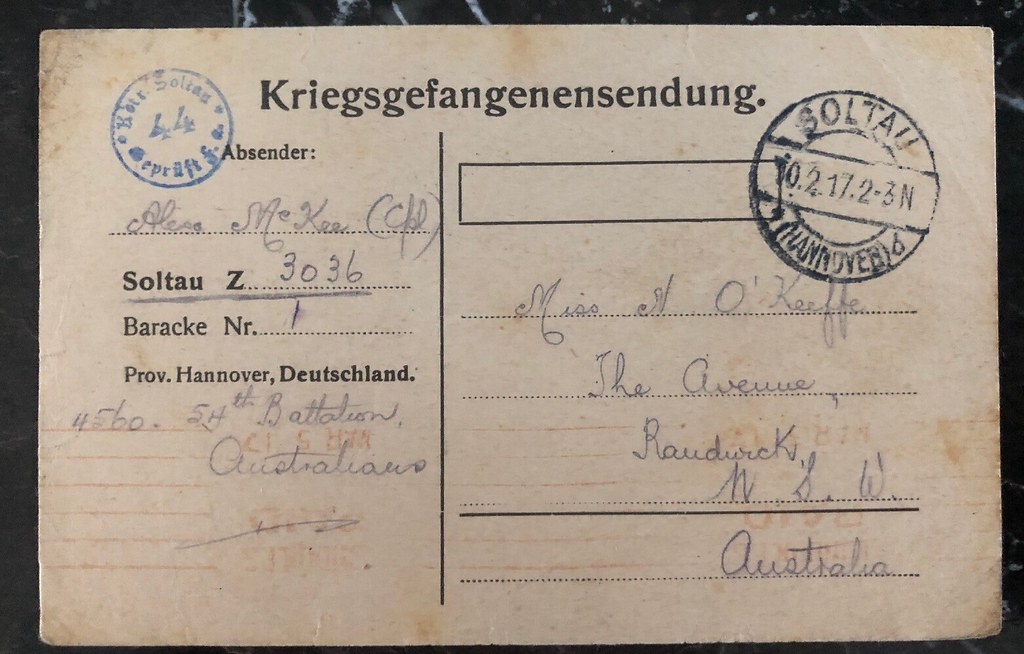 Kriegsgefangenensendung.
Soltau
44
Geprüft F. a.
SOLTAU
10.2.17.2-3N
(HANNOVER) d
Absender:
Alex McKee (Cpl)
Soltau Z 3036
Baracke Nr. 1
Prov. Hannover, Deutschland.
4560. 54th Battalion,
Australians
Miss N. O'Keeffe
The Avenue,
Randwick,
N. S. W.
Australia